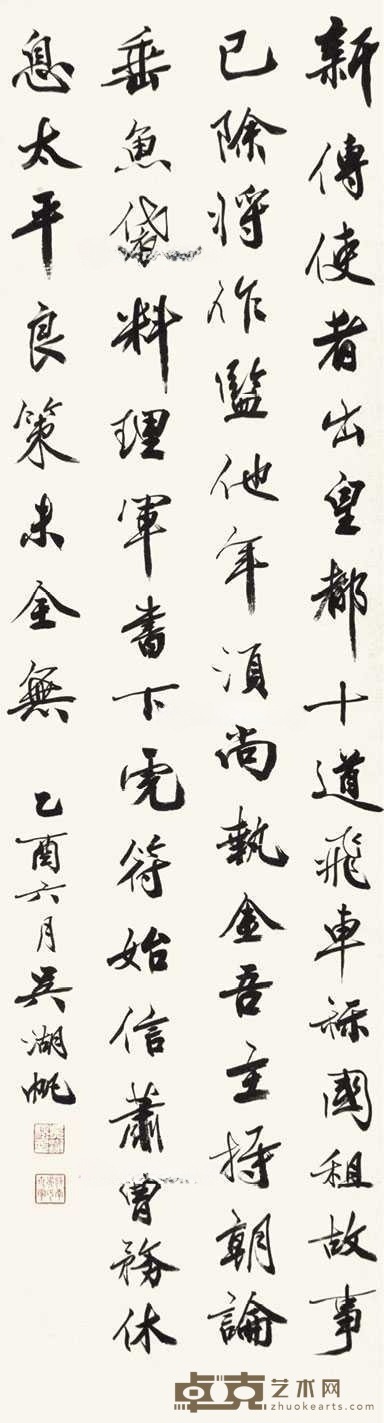 新傳使者出皇都十道飛車稱國租故事
已除將作監他年須尚執金吾主持朝論
垂魚袋料理軍書下虎符始信蕭曹務休
息太平良策未全無
乙酉六月吳湖帆
卓克艺术网
zhuokearts.com